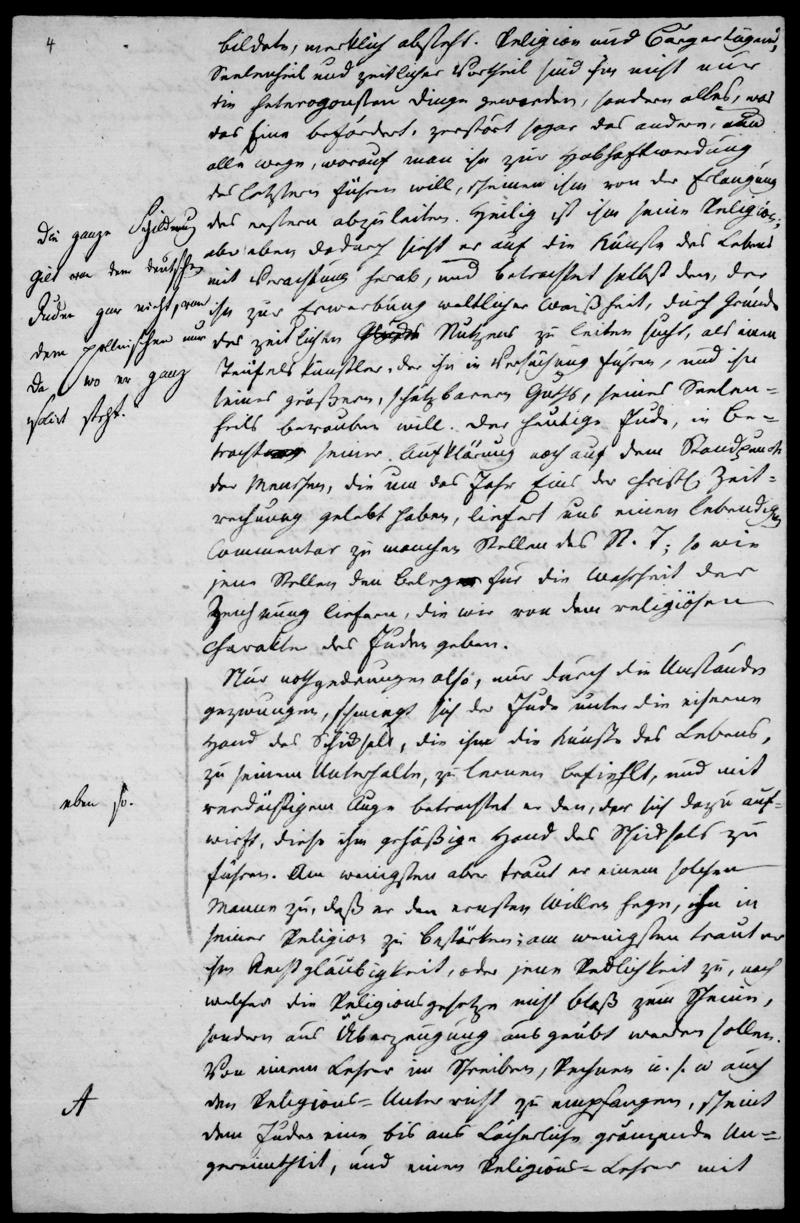 4
bildete, merklich absteht. Religion und Bürgertugend,
Seelenheil und zeitlicher Vortheil sind ihm nicht nur
die heterogensten Dinge geworden, sondern alles, was
das Eine befördert, zerstört sogar das andere, und
alle Wege, worauf man ihn zur Habhaftwerdung
des letztern führen will, scheinen ihm von der Erlangung
des erstern abzuleiten. Heilig ist ihm seine Religion;
aber eben dadurch sieht er auf die Künste des Lebens
mit Verachtung herab, und betrachtet selbst den, der
ihn zur Erwerbung weltlicher Weißheit, durch Gründe
des zeitlichen Nutzens zu leiten sucht, als einen
Teufelskünstler, der ihn in Versuchung führen, und ihn
seines größern, schetzbarern Guths, seines Seelen-
heils berauben will. Der heutige Jude, in Be-
tracht seiner Aufklärung noch auf dem Standpunct
der Menschen, die um das Jahr Eins der christl. Zeit-
rechnung gelebt haben, liefert uns einen lebendigen
Commentar zu manchen Stellen des N. T; so wie
jene Stellen den Beleg für die Wahrheit der
Zeichnung liefern, die wir von dem religiösen
Charakter des Juden geben.
Die ganze Schilderung
gilt von dem deutschen
Juden gar nicht, von
dem pollnischen nur
da, wo er ganz
isolirt steht.
Nur nothgedrungen also, nur durch die Umstände
gezwungen, schmiegt sich der Jude unter die eiserne
Hand des Schicksals, die ihm die Künste des Lebens,
zu seinem Unterhalte, zu lernen befiehlt, und mit
verdächtigem Auge betrachtet er den, der sich dazu auf-
wirft, diese ihm gehäßige Hand des Schicksals zu
führen. Am wenigsten aber traut er einem solchen
Manne zu, daß er den ernsten Willen hege, ihn in
seiner Religion zu bestärken; am wenigsten traut er
ihm Rechtgläubigkeit, oder jene Redlichkeit zu, nach
welcher die Religionsgesetze nicht bloß zum Scheine,
sondern aus Überzeugung ausgeübt werden sollen.
Von einem Lehrer im Schreiben, Rechnen u. s. w auch
den Religions-Unterricht zu empfangen, scheint
dem Juden eine bis ans Lächerliche gränzende Un-
gereimtheit, und einen Religions-Lehrer mit
eben so.
A